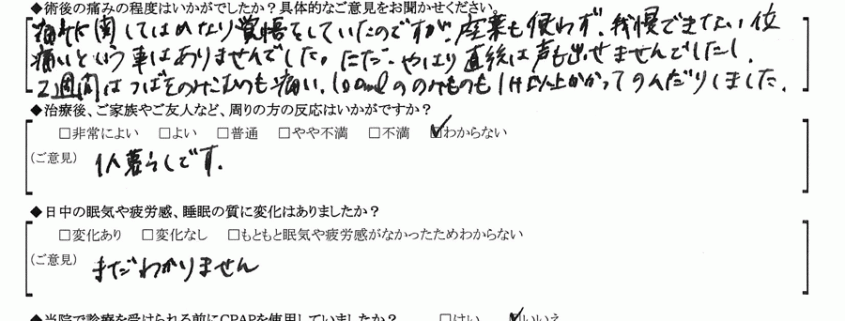 ◆術後の痛みの程度はいかがでしたか？具体的なご意見をお聞かせください。
痛みに関してはかなり覚悟をしていたのですが、座薬も使わず、我慢できない位
痛いという事はありませんでした。ただ、やはり直後は声も出せませんでしたし、
2週間はつばをのみこむのも痛い、100mlののみものも1h以上かかってのんだりしました。
◆治療後、ご家族やご友人など、周りの方の反応はいかがですか？
□非常によい □よい □普通 □やや不満 □不満 ☑わからない
(ご意見) 1人暮らしです。
◆日中の眠気や疲労感、睡眠の質に変化はありましたか？
□変化あり □変化なし □もともと眠気や疲労感がなかったためわからない
(ご意見) まだわかりません
◆当院で診療を受けられる前にCPAPを使用していましたか？ □はい ☑いいえ